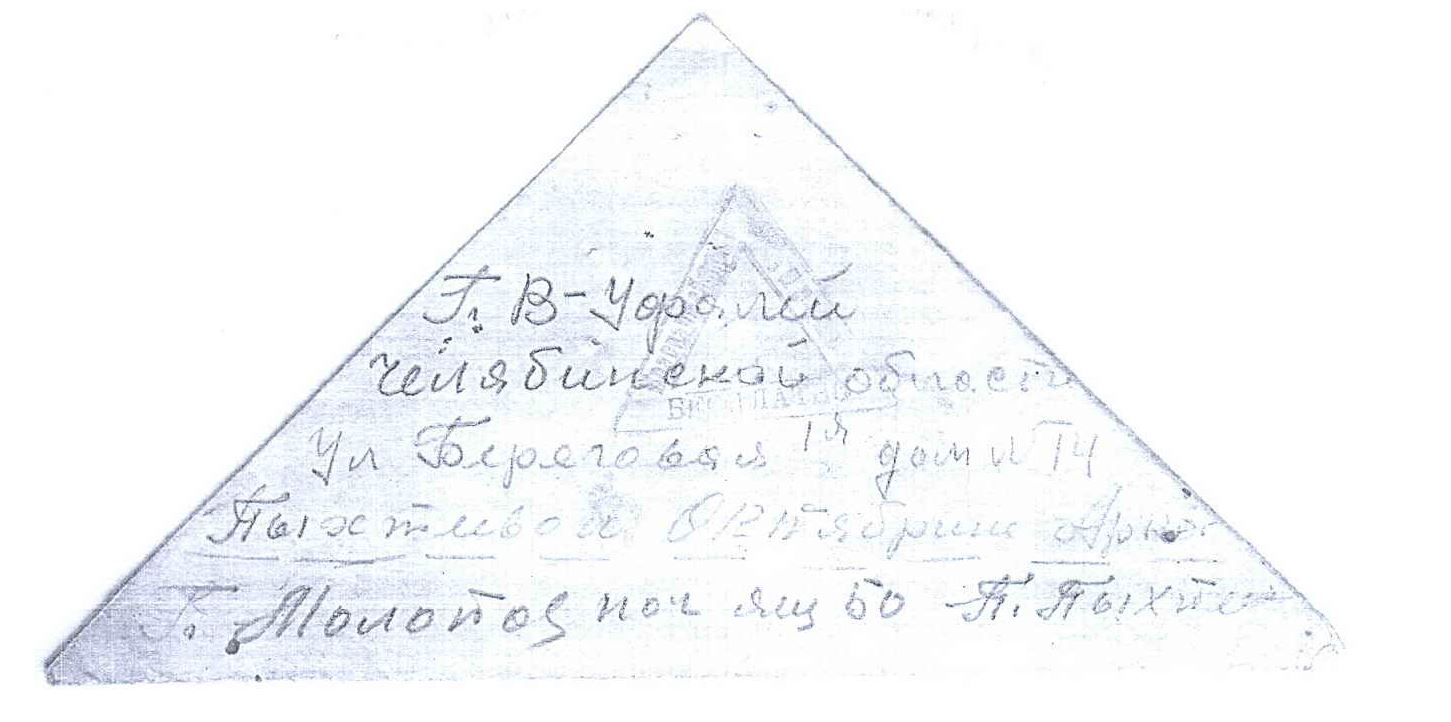 Г. В-Уфалей
Челябинской области
Ул Береговая 1я дом № 14
Пыхтеевой Октябрине
Г. Молотов поч ящ 50 П.
БЕСПЛАТНО